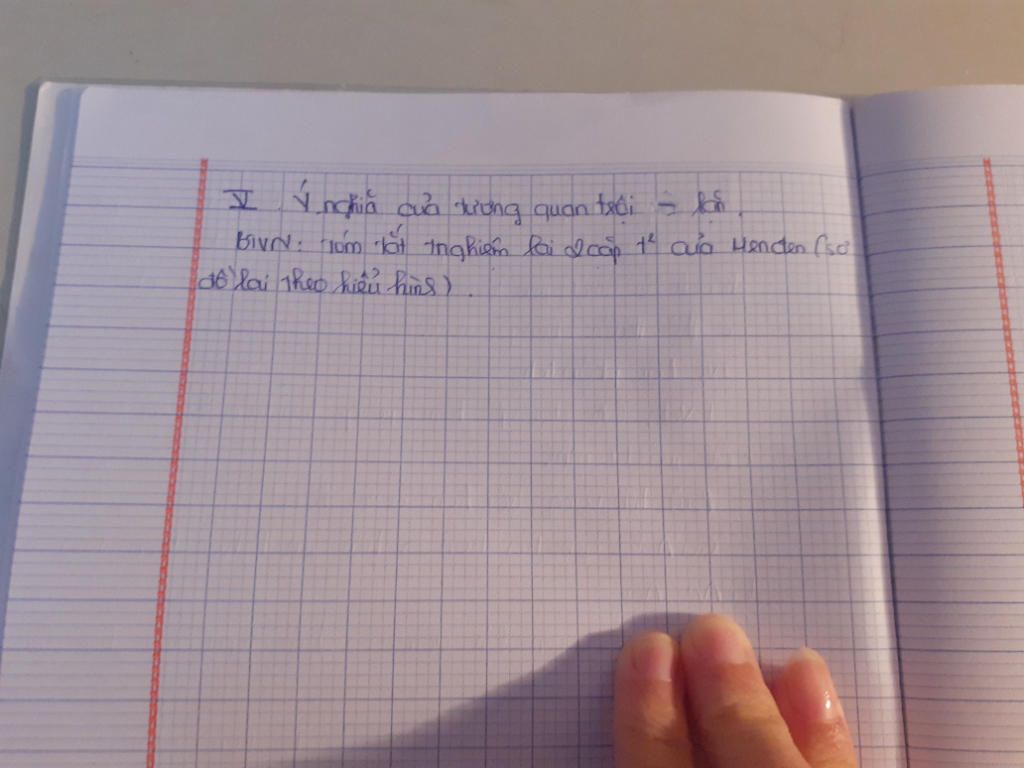 V. Ý nghĩa của tương quan trội - lặn.
BTVN: Tóm tắt Tnghiệm lai 2 cặp t² của Menđen (sơ
đồ lai theo kiểu hình).